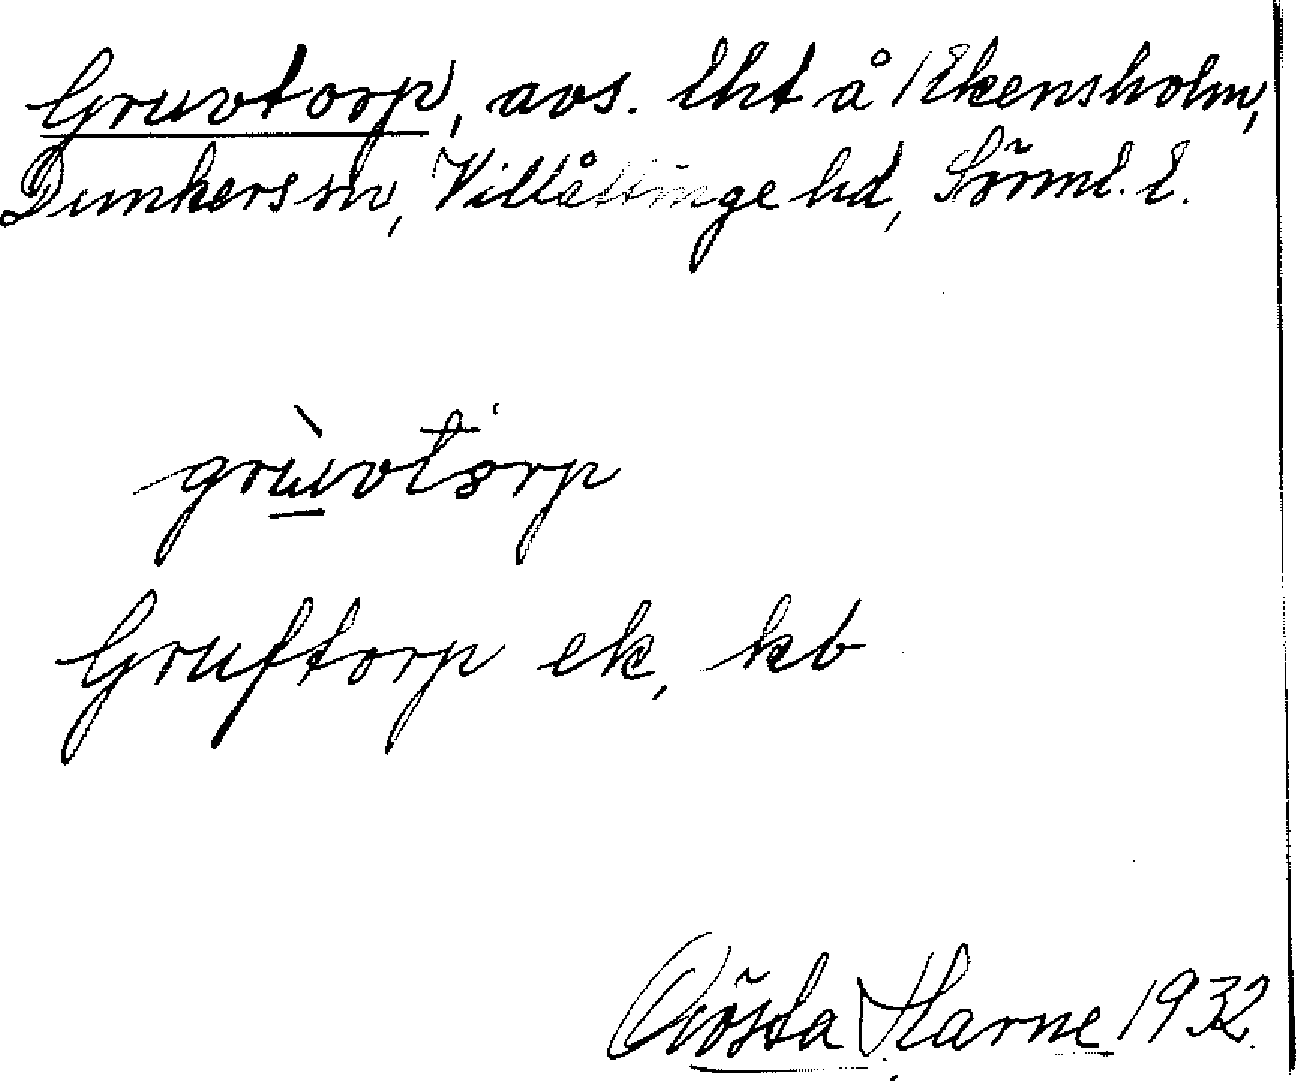 Gruvtorp, avs. lht å Ekensholm,
Dunkers sn, Villåttinge hd, Sörml. l.
grùvtorp
Gruftorp ek, kb
Gösta Harne 1932.